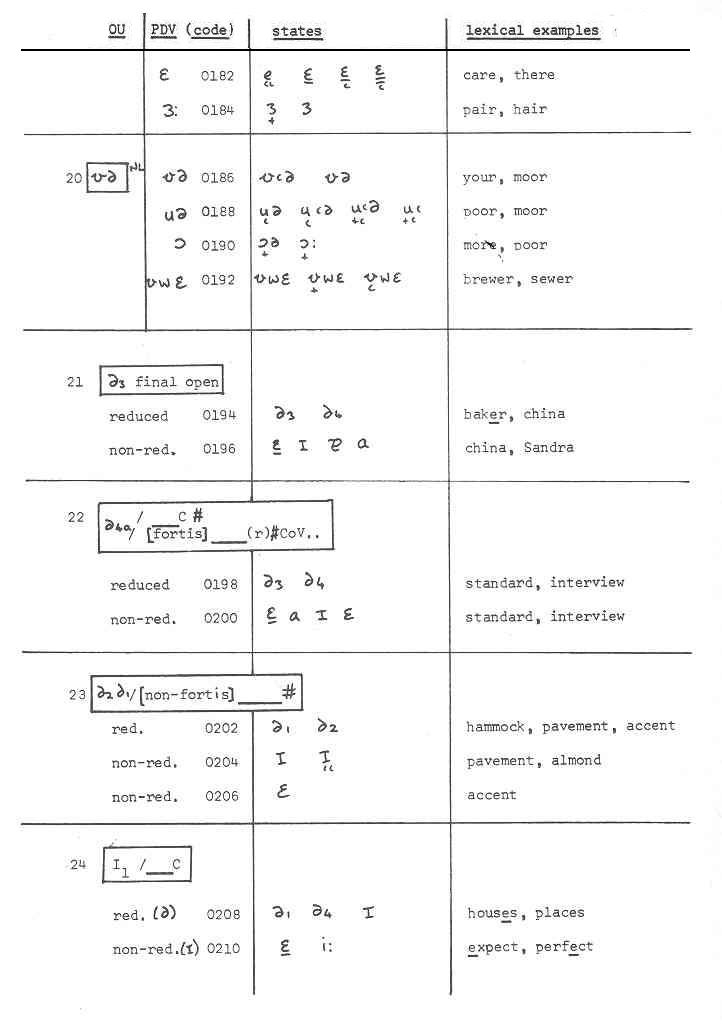 OU PDV (code) states lexical examples
ɛ 0182 care, there
ɜ: 0184 ɜ ɜ pair, hair
20 ʊə NL ʊə 0186 ʊcə ʊə your, moor
uə 0188 poor, moor
ɔ 0190 ɔə ɔ: more, poor
ʊwɛ 0192 ʊwɛ ʊwɛ ʊwɛ brewer, sewer
21 ə3 final open
reduced 0194 ə3 ə4 baker, china
non-red. 0196 ɛ I a china, Sandra
22 / ___C #
ə4a/ [fortis]____(r)#CoV..
reduced 0198 ə3 ə4 standard, interview
non-red. 0200 ɛ a I ɛ standard, interview
23 ə2 ə1/[non-fortis]_____#
red. 0202 ə1 ə2 hammock, pavement, accent
non-red. 0204 I I pavement, almond
non-red. 0206 ɛ accent
24 I1 /___C
red. (ə) 0208 ə1 ə4 I houses, places
non-red.(I) 0210 ɛ i: expect, perfect